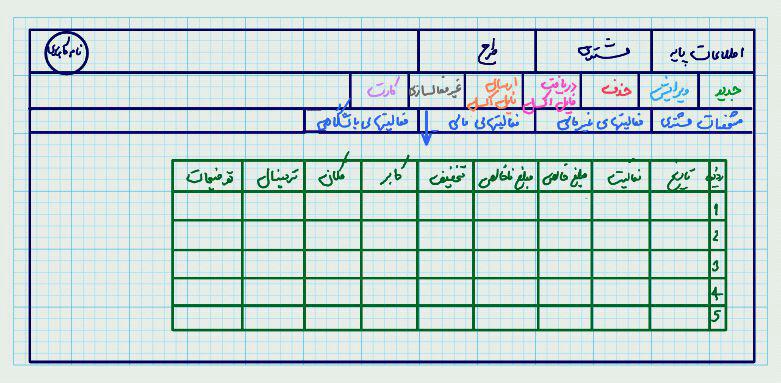 اطلاعات پایه مشتری طرح نام کاربری
جدید ویرایش حذف دریافت فایل اکسل ارسال فایل اکسل غیرفعالسازی کارت
مشخصات مشتری فعالیتهای غیرمالی فعالیتهای مالی فعالیتهای باشگاهی
ردیف تاریخ فعالیت مبلغ خالص مبلغ ناخالص تخفیف کاربر مکان ترمینال توضیحات
1
2
3
4
5